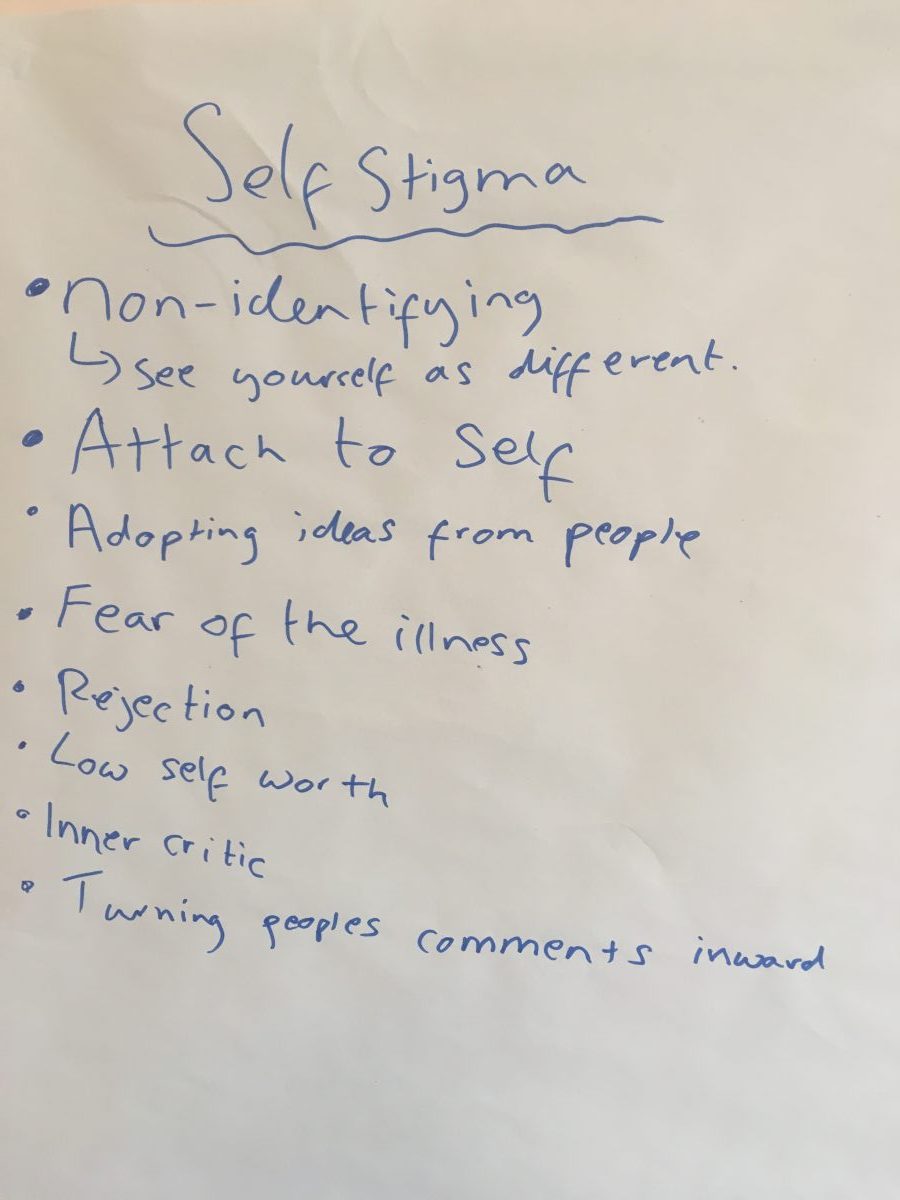 Self Stigma
• Non-identifying
↳ see yourself as different.
• Attach to Self
• Adopting ideas from people
• Fear of the illness
• Rejection
• Low self worth
• Inner critic
• Turning peoples comments inward